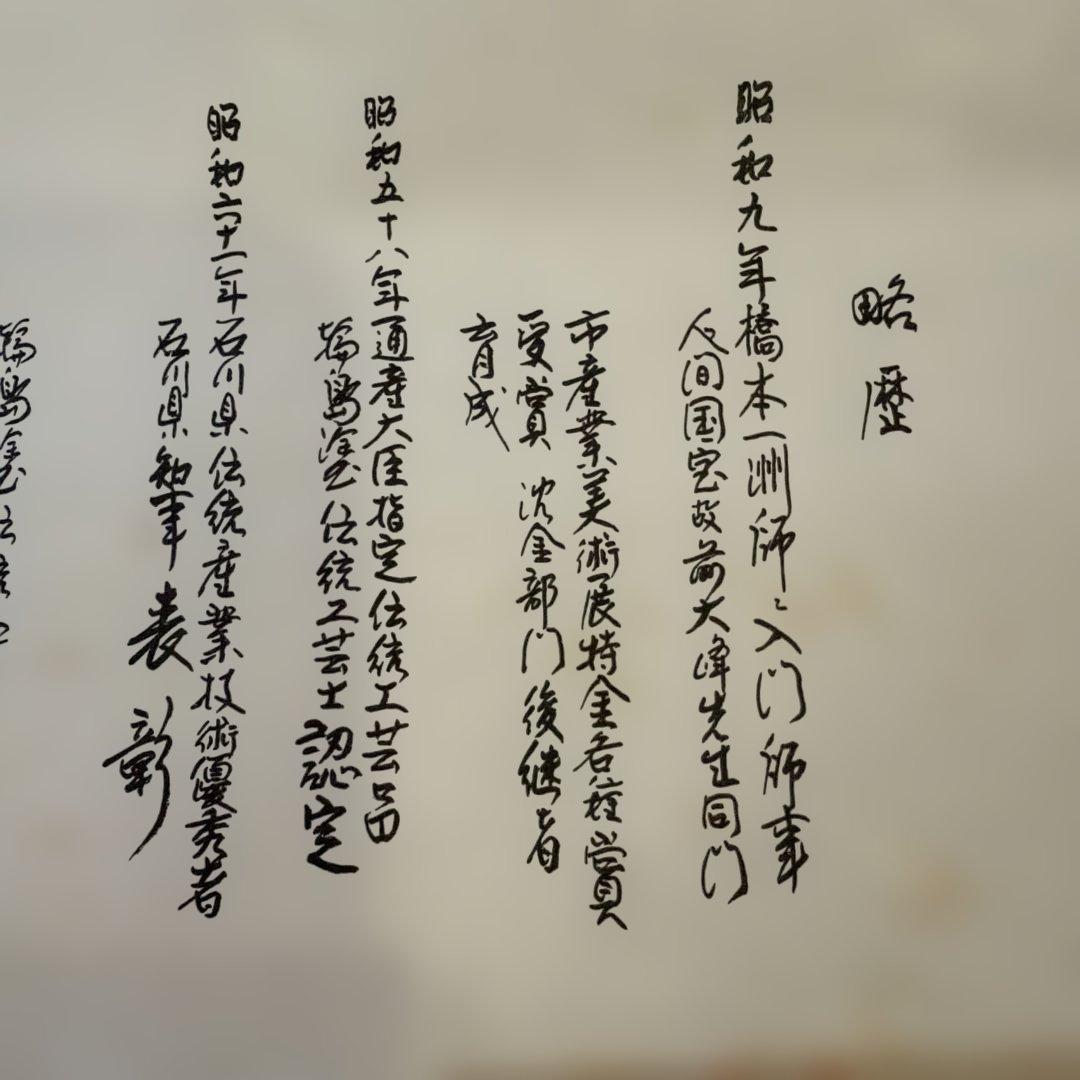 略歴
昭和九年橋本一洲師ニ入門師事
人间国宝故前大峰先生同门
市産業美術展特金各種賞
受賞 沈金部门後継者
育成
昭和五十八年通産大臣指定伝統工芸品
輪島塗伝統工芸士認定
昭和六十一年石川県伝統産業技術優秀者
石川県知事表彰
輪島塗